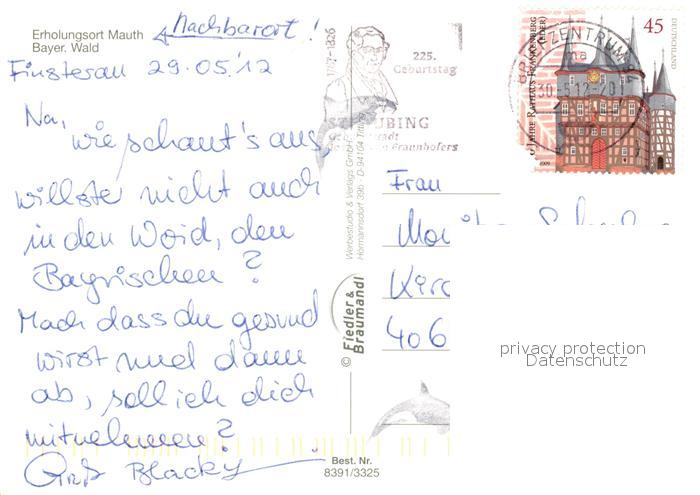 Erholungsort Mauth
Bayer. Wald
Nachbarort!
Finsterau 29.05.'12
Na,
wie schaut's aus,
willste nicht auch
in den Woid, den
Bayrischen?
Mach dass du gesund
wirst und dann
ab, soll ich dich
mitnehmen?
Gruß Blacky
1787-1826
225.
Geburtstag
Fraunhofers
BRIEFZENTRUM
30.-5.12-20
45
DEUTSCHLAND
RATHAUS FRANKENBERG
(EDER)
2009
Werbestudio & Verlags GmbH
Hormannsdorf 39b · D-94104
© Fiedler &
Braumandl
Frau
406
privacy protection
Datenschutz
Best. Nr.
8391/3325